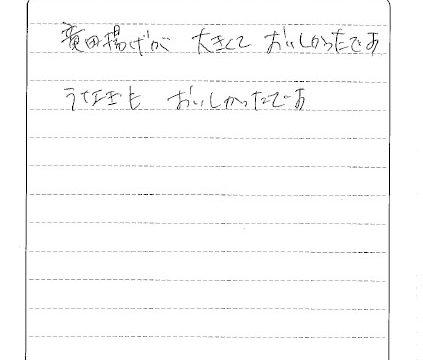 竜田揚げが 大きくて おいしかったです
うなぎも おいしかったです